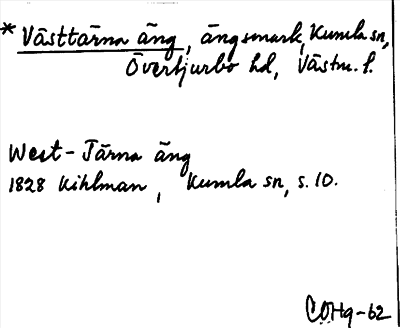 * Västtärna äng, ängsmark, Kumla sn,
Övertjurbo hd, Västm. l.
West-Tärna äng
1828 Kihlman, Kumla sn, s. 10.
COHq-62